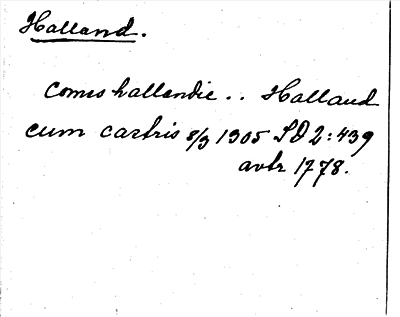 Halland.
Comes hallendie .. Halland
cum castris 8/3 1305 SD 2:439
avtr 1778.